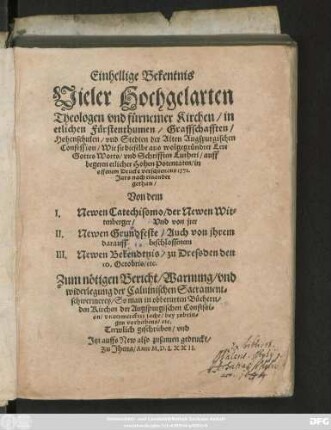 Einhellige Bekentnis
Vieler Hochgelarten
Theologen vnd fürnemer Kirchen/ in
etlichen Fürstenthumen/ Graffschafften/
Hohenschulen/ vnd Stedten der Alten Augspurgischen
Confession/ Wie sie dieselbe aus wolgegründter Lere
Gottes Worts/ vnd Schrifften Lutheri/ auff
begeren etlicher Hohen Potentaten/ in
offenem Druck verschienens 1571.
Jars nach einander
gethan/
Von dem
I. Newen Catechismo/ der Newen Wit-
tenberger/ Vnd von jrer
II. Newen Grundfeste/ Auch von jhrem
darauff beschlossenem
III. Newen Bekendtnis/ zu Dresden den
10. Octobris/ etc.
Zum nötigen Bericht/ Warnung/ vnd
widerlegung der Caluinischen Sacrament-
schwermerey/ So man in obbemelten Büchern/
den Kirchen der Augspurgischen Confessi-
on/
Trewlich geschrieben/ vnd
Itzt auffs New also zusamen gedruckt/
zu Jhena/ Anno M. D. LXXII.